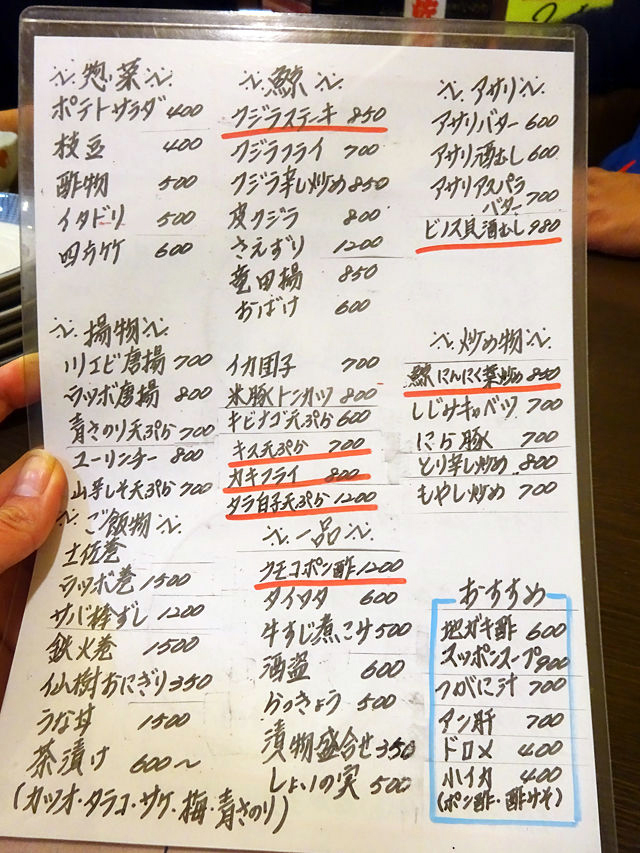 惣菜
ポテトサラダ 400
枝豆 400
酢物 500
イタドリ 500
四方竹 600
鯨
クジラステーキ 850
クジラフライ 700
クジラ辛し炒め 850
皮クジラ 800
さえずり 1200
竜田揚 850
おばけ 600
アサリ
アサリバター 600
アサリ酒むし 600
アサリアスパラ
バター 700
ビノス貝酒むし 980
揚物
川エビ唐揚 700
ウツボ唐揚 800
青さのり天ぷら 700
ユーリンチー 800
山芋しそ天ぷら 700
イカ団子 700
米豚トンカツ 800
キビナゴ天ぷら 600
キス天ぷら 700
カキフライ 800
タラ白子天ぷら 1200
炒め物
鯨にんにく葉炒め 850
しじみキャベツ 700
にら豚 700
とり辛し炒め 800
もやし炒め 700
ご飯物
土佐巻
ウツボ巻 1500
サバ棒ずし 1200
鉄火巻 1500
仙樹おにぎり 350
うな丼 1500
茶漬け 600～
(カツオ・タラコ・サケ・梅・青さのり)
一品
クモコポン酢 1200
タイワタ 600
牛すじ煮こみ 500
酒盗 600
らっきょう 500
漬物盛合せ 350
しょいの実 500
おすすめ
地ガキ酢 600
スッポンスープ 900
つがに汁 700
アン肝 700
ドロメ 400
小イカ 400
(ポン酢・酢みそ)